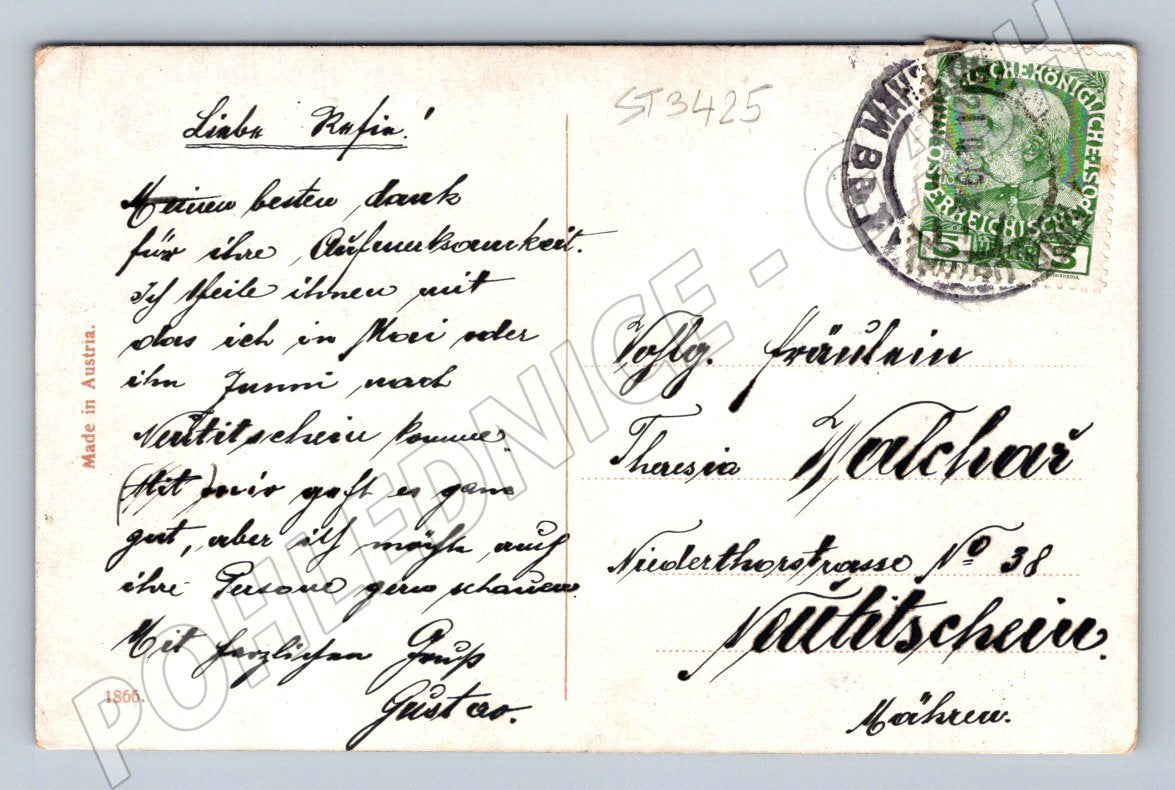 ST3425
Liebe Resie!
Meinen besten dank
für ihre Aufmerksamkeit.
Ich theile ihnen mit
das ich in Mai oder
ihn Junni nach
Neutitschein komme
(Mit) mir geht es ganz
gut, aber ich möchte auch
ihre Persone gern schauen.
Mit herzlichen Gruß
Gustav.
Wohlg. Fräulein
Theresia Walchař
Niederthorstrasse No 38
Neutitschein.
Mähren.
Made in Austria.
1866.
5 5
ÖSTERREICHISCHE
POHLEDNICE